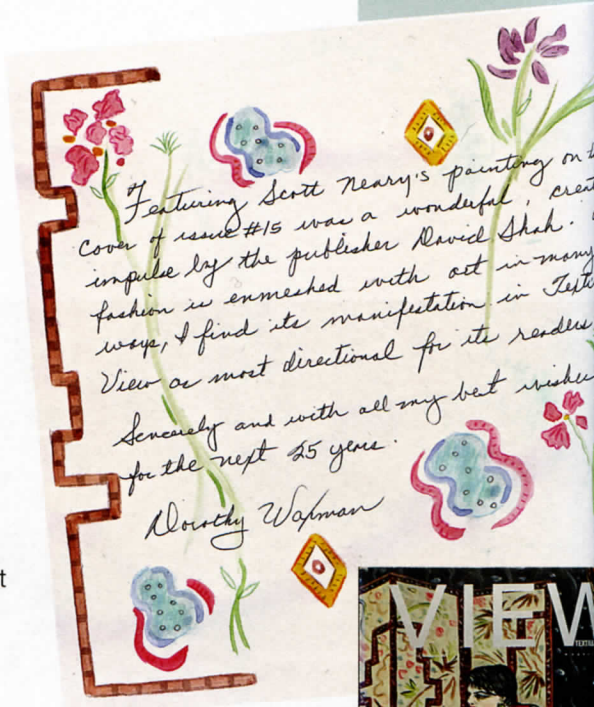 Featuring Scott Neary's painting on
cover of issue #15 was a wonderful, creat
impulse by the publisher David Shah.
fashion is enmeshed with art in many
ways, I find its manifestation in Texti
View as most directional for its readers
Sincerely and with all my best wishe
for the next 25 years.
Dorothy Waxman
t
VIEW